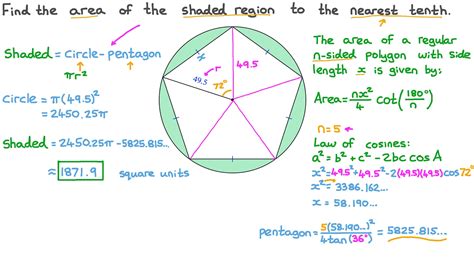 Find the area of the shaded region to the nearest tenth.
Shaded = Circle - pentagon
πr²
Circle = π(49.5)²
= 2450.25π
Shaded = 2450.25π - 5825.815...
≈ 1871.9 square units
r
49.5
49.5
72°
x
The area of a regular
n-sided polygon with side
length x is given by:
Area = nx²/4 cot(180°/n)
n = 5
Law of cosines:
a² = b² + c² - 2bc cos A
x² = 49.5² + 49.5² - 2(49.5)(49.5) cos 72°
x² = 3386.162...
x = 58.190...
pentagon = 5(58.190...)²/4tan(36°) = 5825.815...